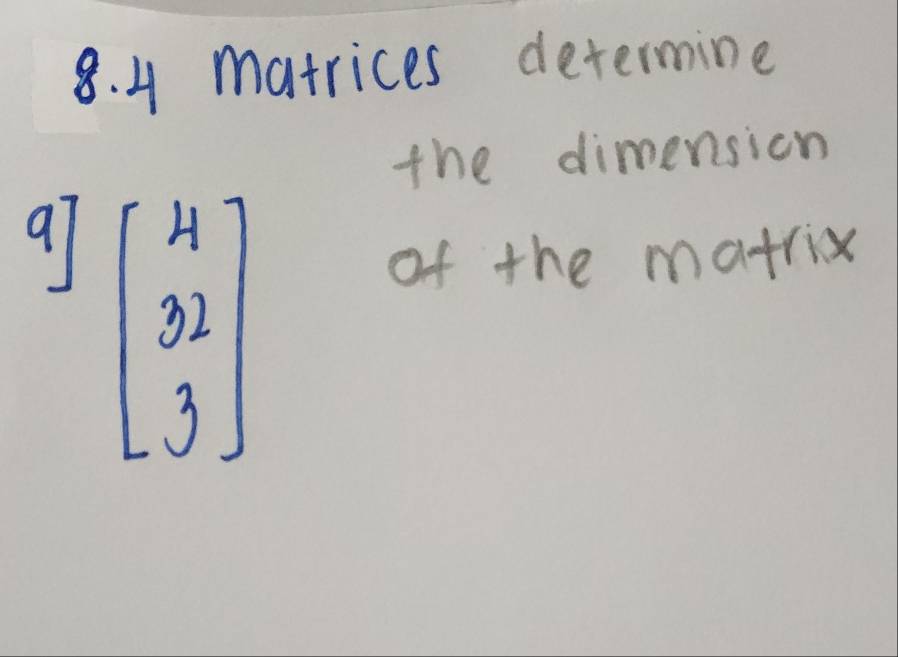 8.4 matrices determine
the dimension
of the matrix
9] [ 4
32
3 ]